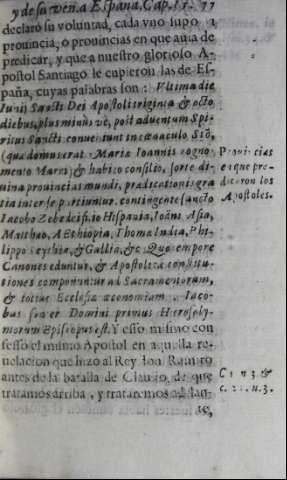 y de su ven. a España, Cap. 77
declaró su voluntad, cada vno supo a
prouincia, o prouincias en que auia de
predicar, y que a nuestro glorioso A-
postol Santiago le cupieron las de Es-
paña, cuyas palabras son: Vltima die
Iunij Sancti Dei Apostoli & octo
diebus, plus minus vè, post aduentum Spi-
ritus Sancti conuenerunt in cœnaculo Siõ,
(quæ domus erat Mariæ Ioannis cogno-
mento Marci) & habito consilio, sorte di-
uina prouincias mundi, prædicationis gra
tia inter se partiuntur. contingit sancto
Iacobo Zebedei filio Hispania, Ioãni Asia,
Matthæo Æthiopia, Thomæ India, Phi-
lippo Scythia, & Gallia, &c. Quo tempore
Canones eduntur, & Apostolicæ constitu-
tiones componuntur ad Sacramentorum,
& totius Ecclesiæ œconomiam. Iaco-
bus frater Domini primus Hierosoly-
morum Episcopus est. Y esto mismo con
fessò el mismo Apostol en aquella re-
uelacion que hizo al Rey don Ramiro
antes de la batalla de Clauijo, de que
tratamos arriba, y trataremos adelan-
te,
Prouincias
en que pre-
dicaron los
Apostoles.
C. n. 3. &
c. n. 3.